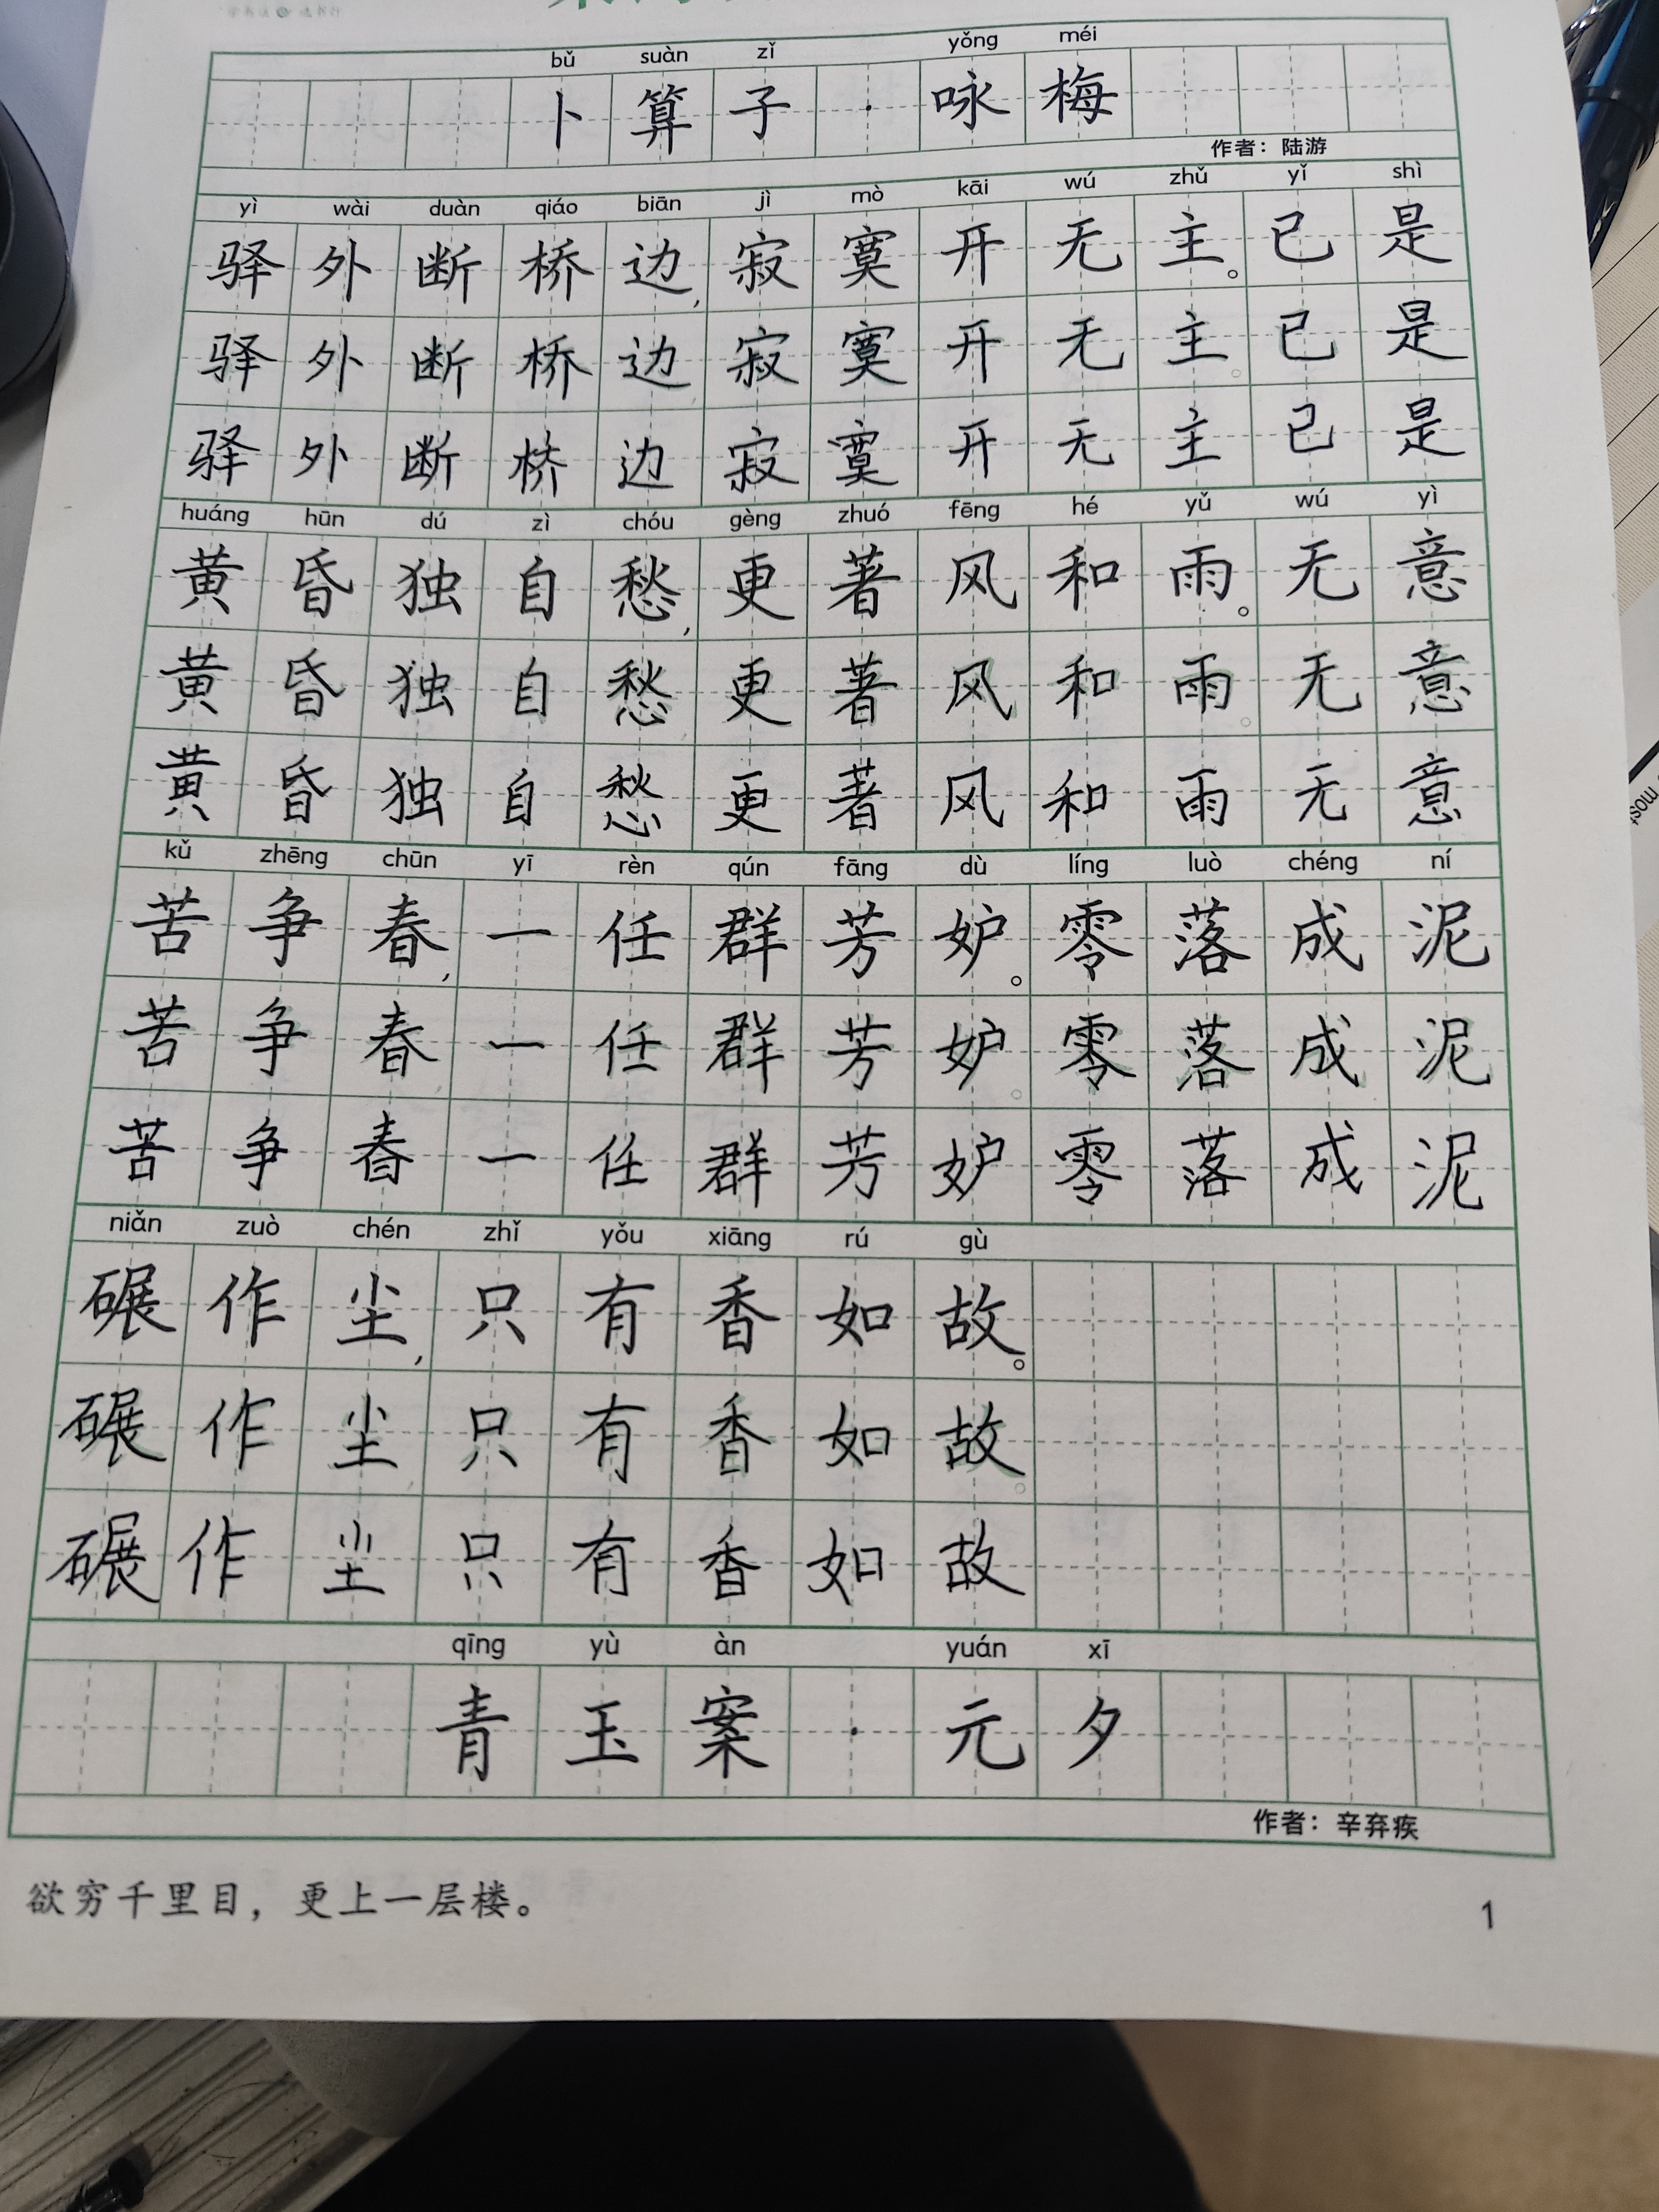 bǔ suàn zǐ yǒng méi
卜算子·咏梅
作者：陆游
yì wài duàn qiáo biān jì mò kāi wú zhǔ yǐ shì
驿外断桥边，寂寞开无主。已是
驿外断桥边寂寞开无主。已是
驿外断桥边寂寞开无主已是
huáng hūn dú zì chóu gèng zhuó fēng hé yǔ wú yì
黄昏独自愁，更著风和雨。无意
黄昏独自愁更著风和雨。无意
黄昏独自愁更著风和雨无意
kǔ zhēng chūn yī rèn qún fāng dù líng luò chéng ní
苦争春，一任群芳妒。零落成泥
苦争春一任群芳妒。零落成泥
苦争春一任群芳妒零落成泥
niǎn zuò chén zhǐ yǒu xiāng rú gù
碾作尘，只有香如故。
碾作尘，只有香如故。
碾作尘只有香如故
qīng yù àn yuán xī
青玉案·元夕
作者：辛弃疾
欲穷千里目，更上一层楼。
1